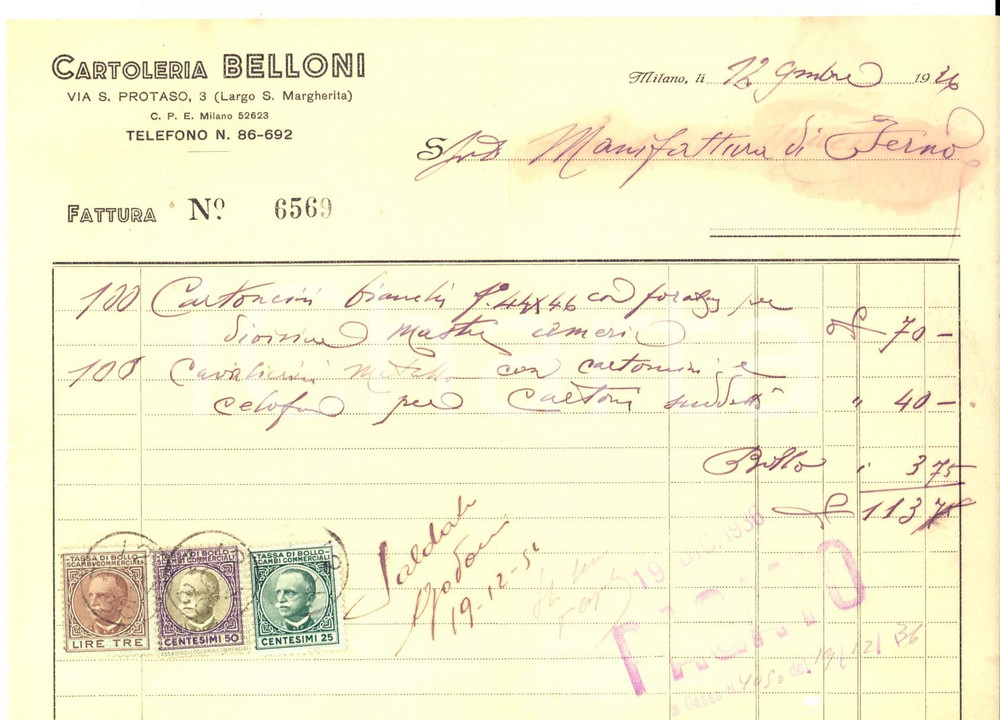 CARTOLERIA BELLONI
VIA S. PROTASO, 3 (Largo S. Margherita)
C. P. E. Milano 52623
TELEFONO N. 86-692
Milano, li 12 9mbre 1936
Manifattura di Ferno
FATTURA Nº 6569
100 Cartoncini bianchi f.º 44x46 con per
£ 70 —
100 Cavalierini con cartoncini e
celofan per Cartoni suddetti " 40 —
Bollo " 3 75
£ 113 75
Saldato
19-12-
TASSA DI BOLLO
SCAMBI COMMERCIALI
LIRE TRE
TASSA DI BOLLO
SCAMBI COMMERCIALI
CENTESIMI 50
TASSA DI BOLLO
SCAMBI COMMERCIALI
CENTESIMI 25
19 DIC. 1936
PAGATO
4050 del 19/12/36